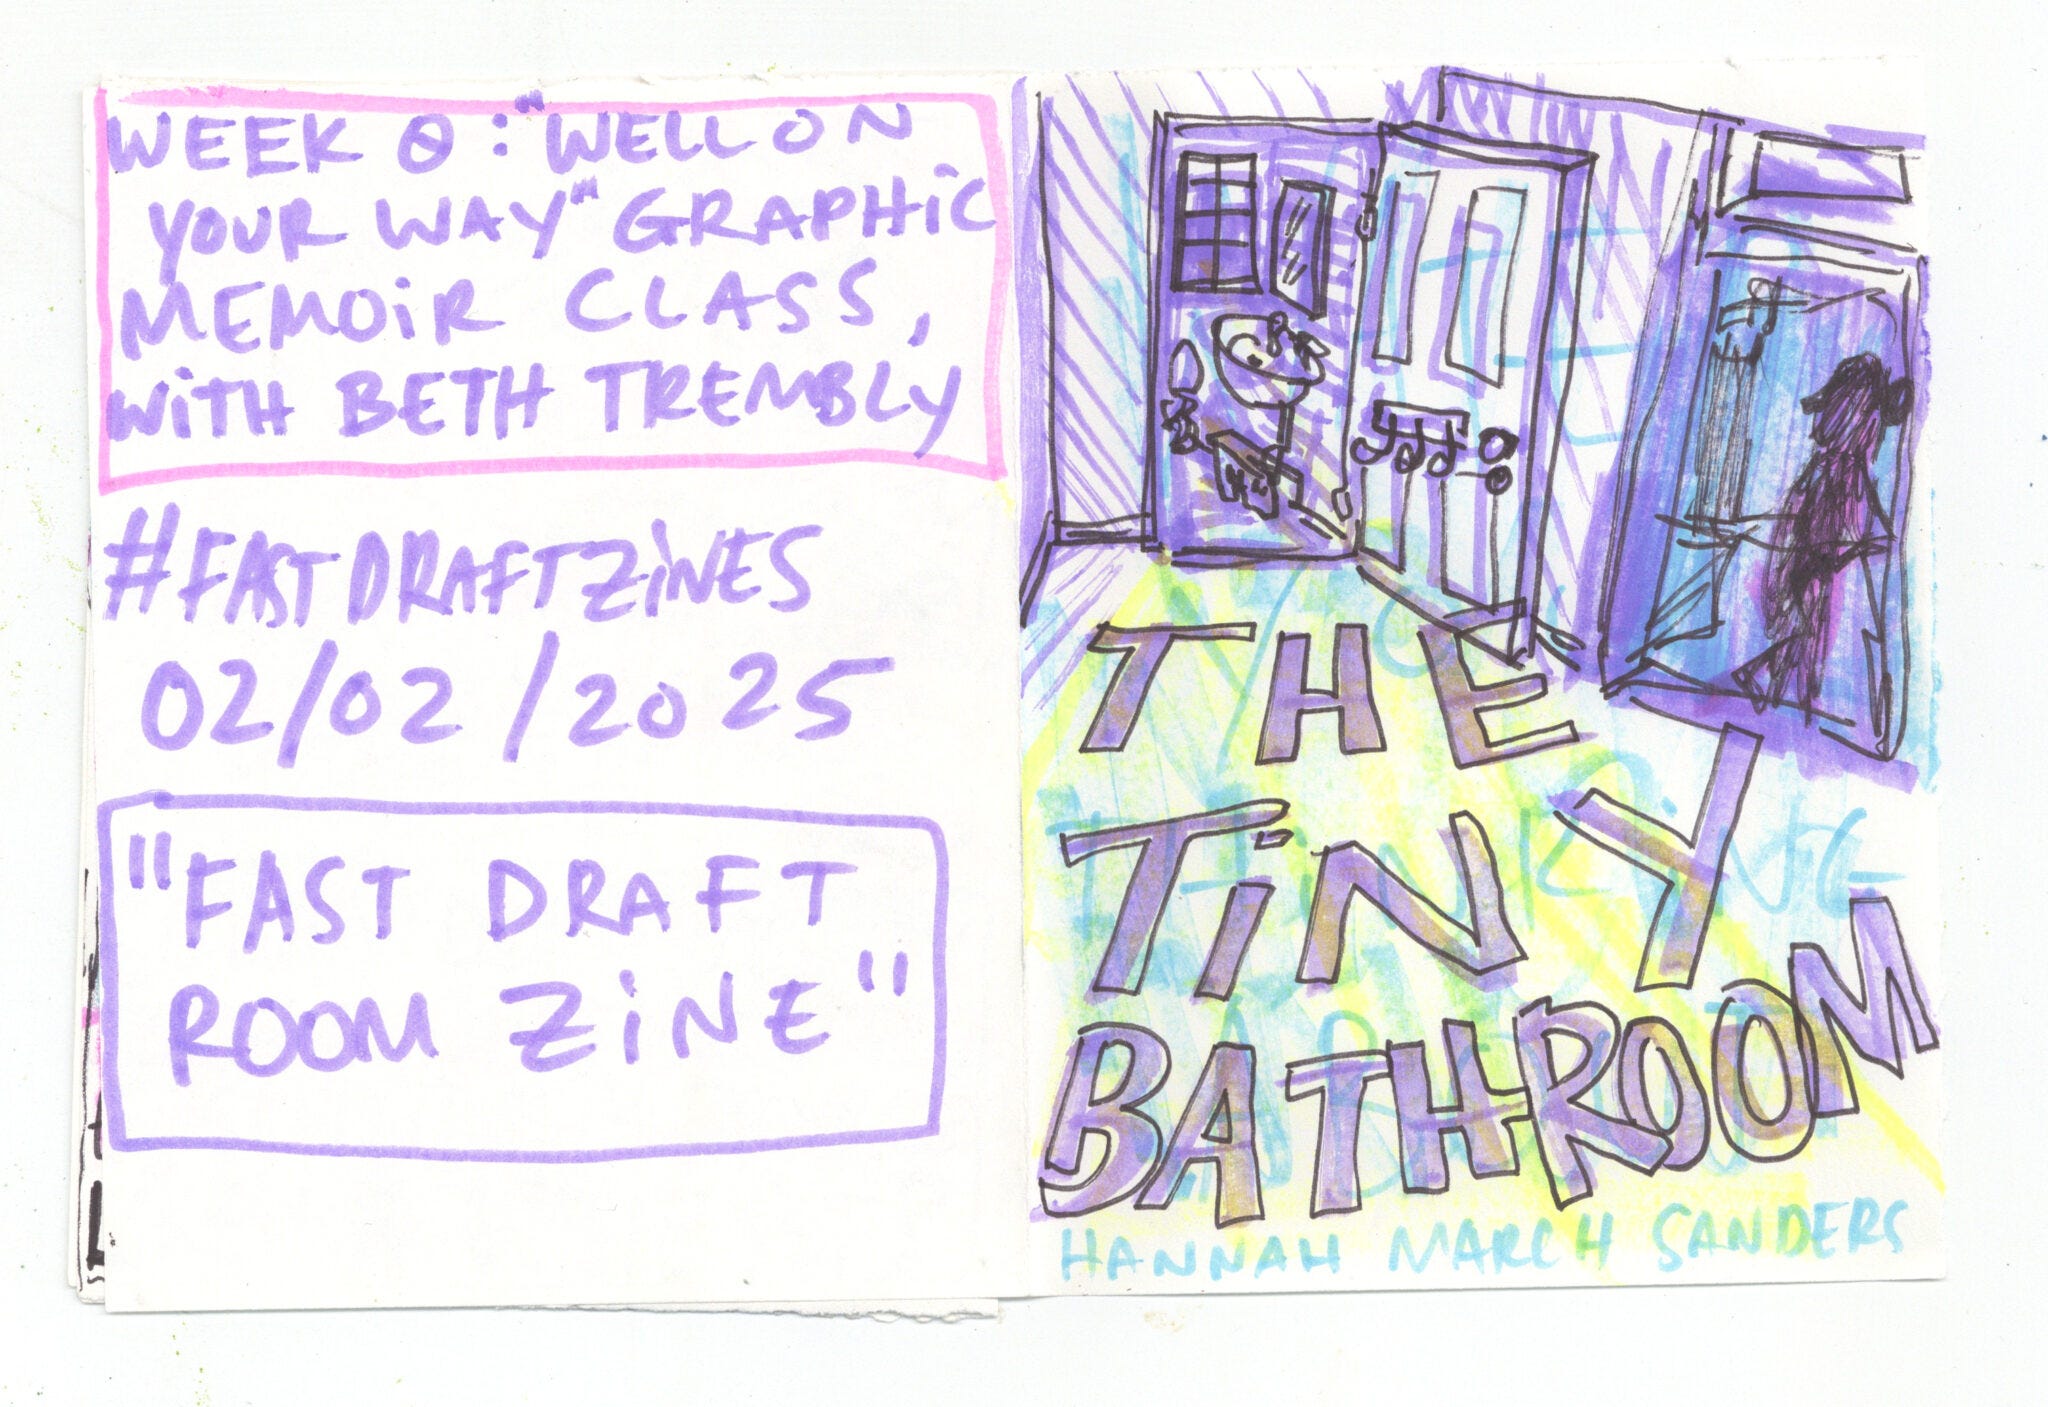 WEEK 0: "WELL ON
YOUR WAY" GRAPHIC
MEMOIR CLASS,
WITH BETH TREMBLY
#FASTDRAFTZINES
02/02/2025
"FAST DRAFT
ROOM ZINE"
THE
TINY
BATHROOM
HANNAH MARCH SANDERS